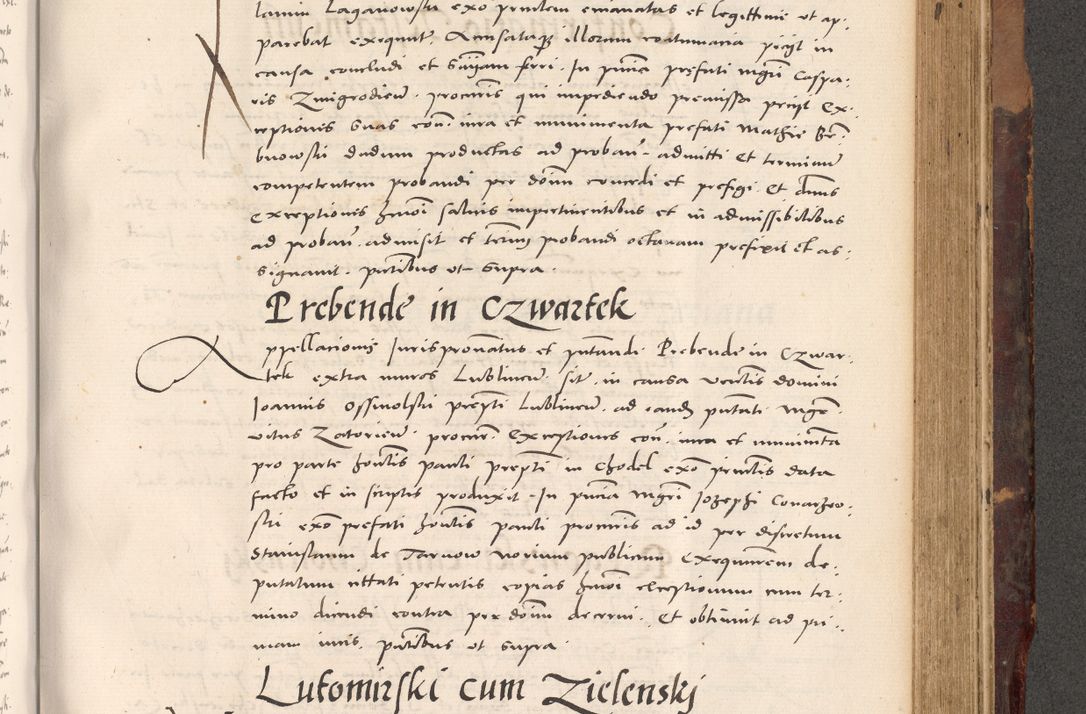 lamin Laganowski ex o pruntem emanatas et legittime ut ap:
parebat exequut. Accusataqz illorum contumacia pecyt in
causa concludi et Sniam ferri. In pntia prefati mgri Caspa:
ris Zmigrodien. procuris qui impediendo premissa pecyt Ex:
ceptiones suas coñ. iura et munimenta prefati Mathie Br
bnowski dudum productas ad proban. admitti Et terminum
competentem probandi per doim concedi et prefigi. Et dnus
Exceptiones hmoi saluis impertinentibus et in admissibilibus
ad proban. admisit et terim probandi octauam prefixit et as:
signauit. pntibus ut supra.
Prebende in Czwartek
Appellationis Jurispronatus et putandi Prebende in Czwar:
tek extra muros Lublinen. sit. in causa uertis domini
Joannis Ossinolski prepti Lublinen. ad eandz putati mgri
uitus Zatorien. procur. Exceptiones coñ. iura et munimta
pro parte hontis pauli prepti in Chodel exo pructis data
facto et in scriptis produxit. In pntia mgri Jozephi Conarzeo:
ski exo prefati hontis pauli procuris ad id per discretum
Stanislaum de Tarnow norium publicum Exequutem de:
putatum cttati petentis copias hmoi exceptionum cum ter:
mino dicendi contra per doim decerni. Et obtinuit ad pri:
mam iuris. pntibus ut supra.
Lutomirski cum Zielenskj